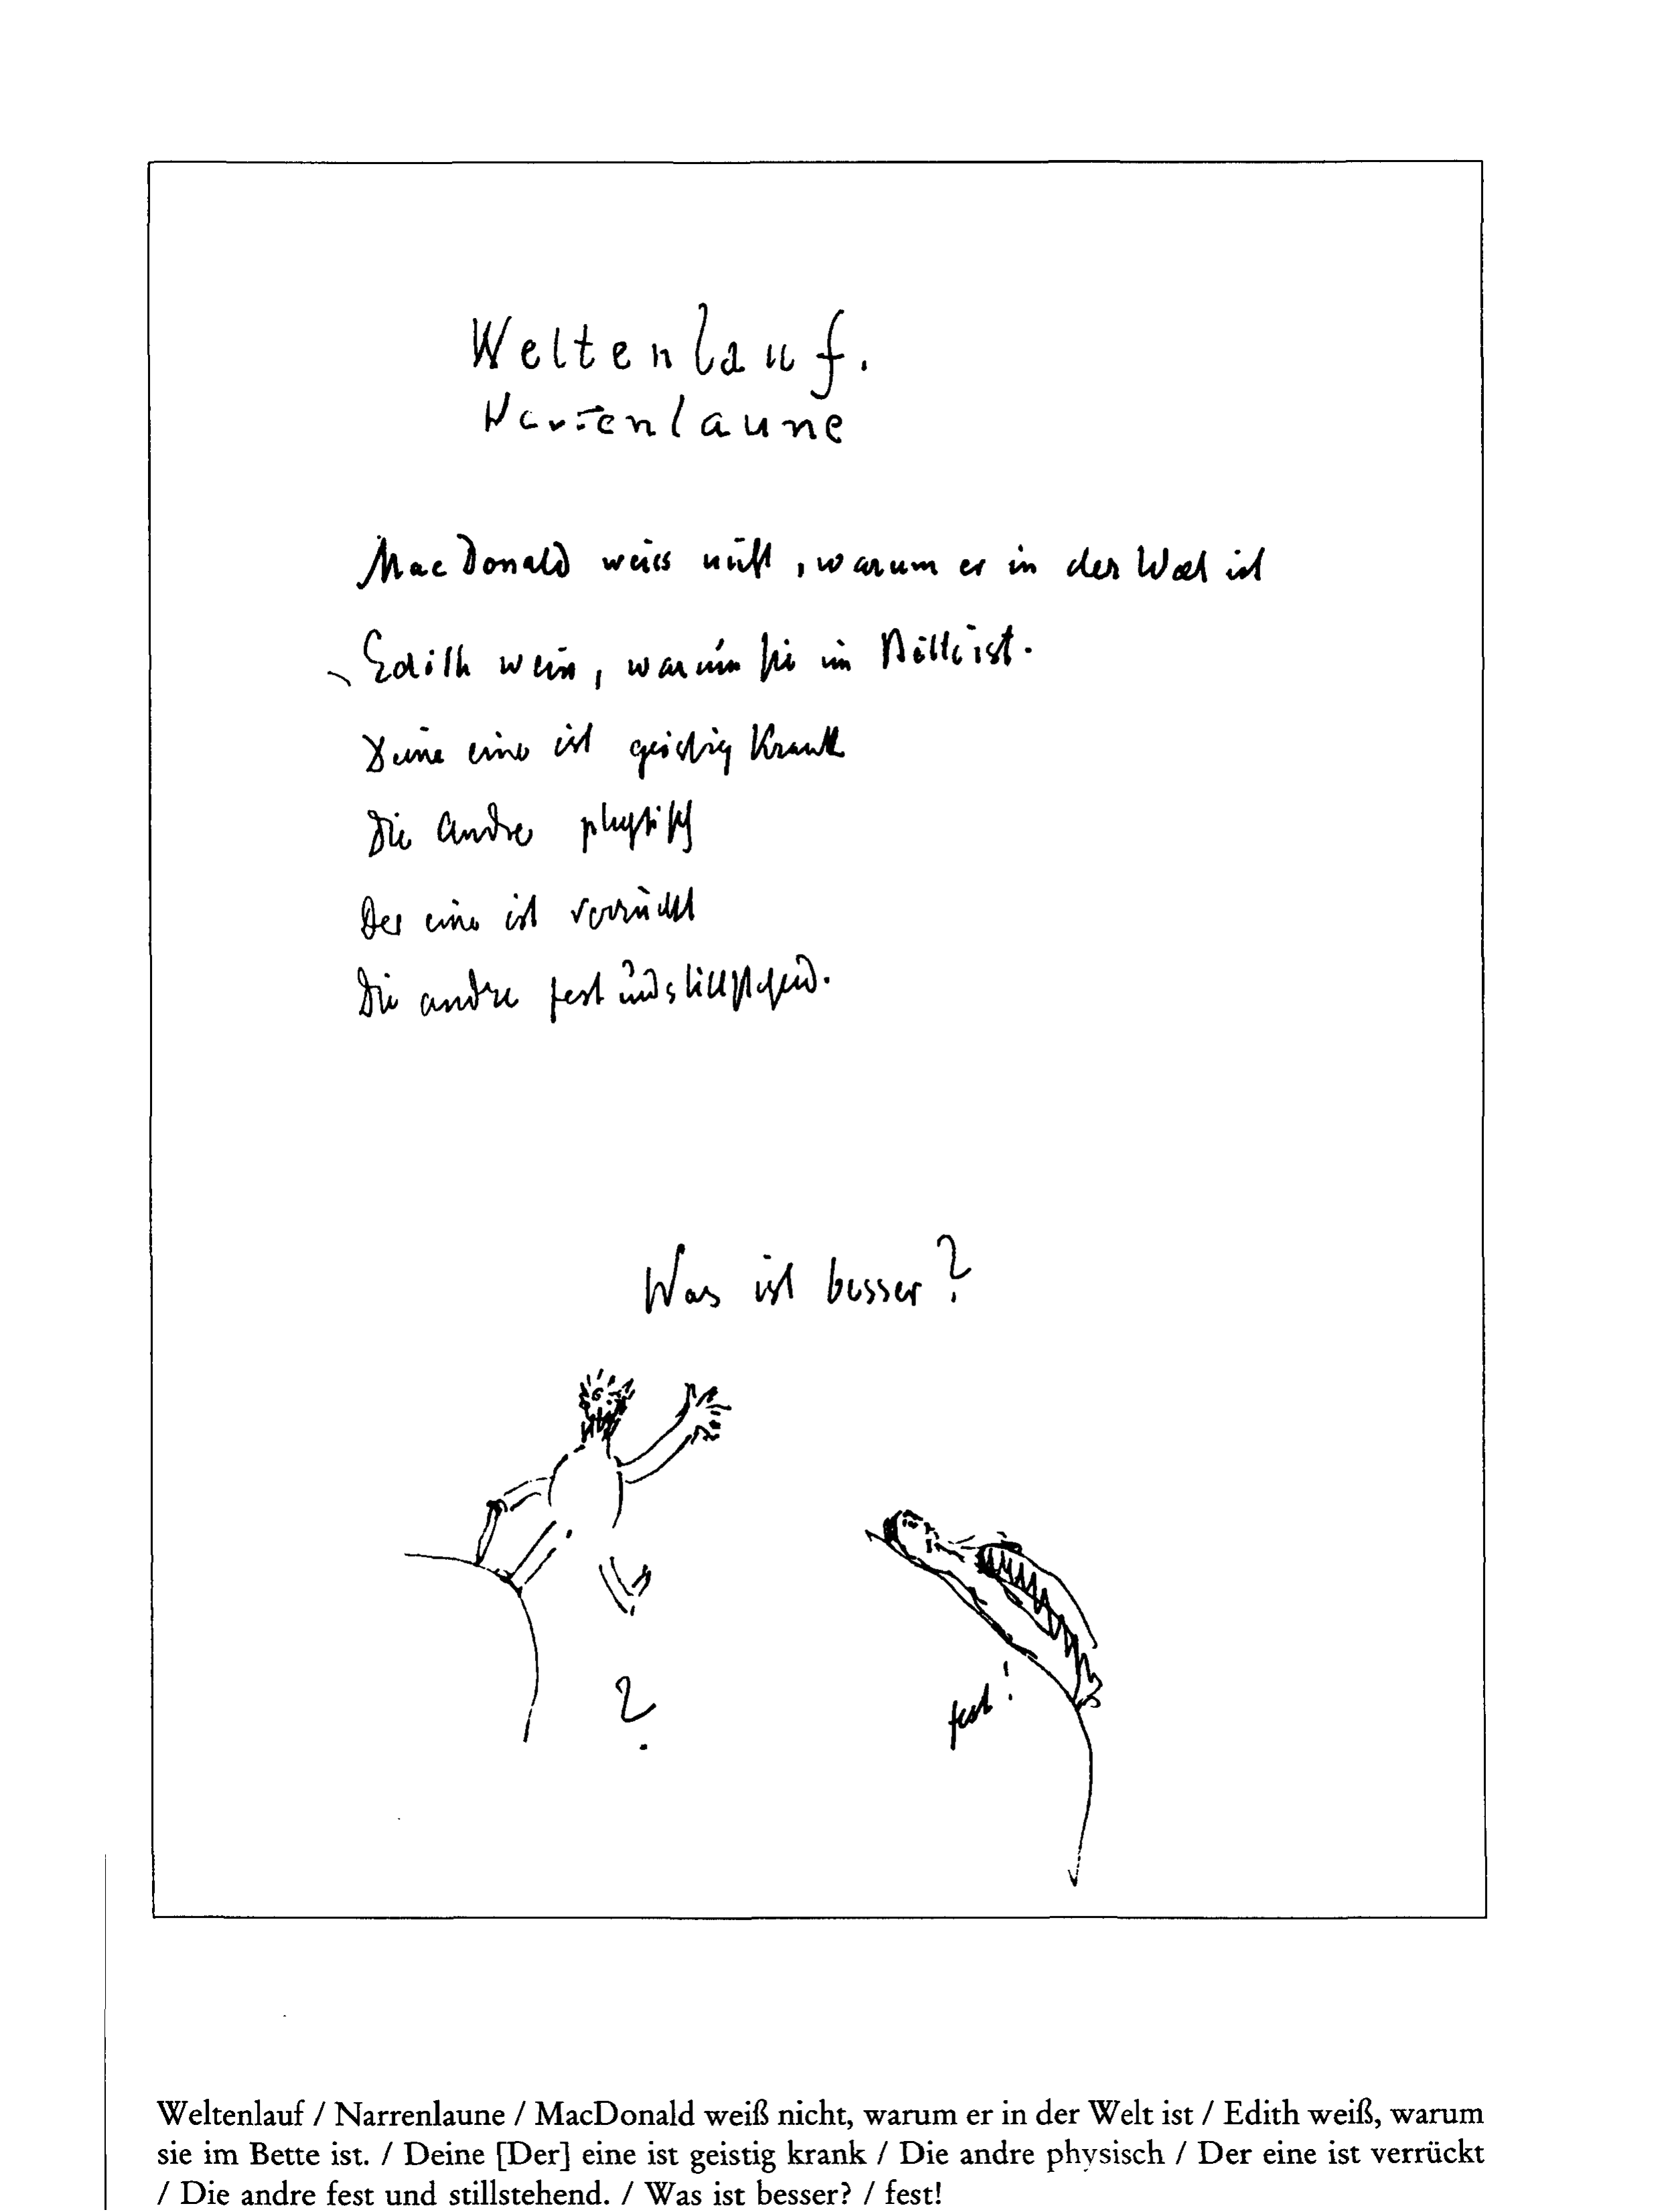 Weltenlauf.
Narrenlaune
MacDonald weiss nicht, warum er in der Welt ist
Edith weiss, warum sie im Bette ist.
Deine eine ist geistig krank
Die andre physisch
Der eine ist verrückt
Die andre fest und stillstehend.
Was ist besser?
?
fest!
Weltenlauf / Narrenlaune / MacDonald weiß nicht, warum er in der Welt ist / Edith weiß, warum
sie im Bette ist. / Deine [Der] eine ist geistig krank / Die andre physisch / Der eine ist verrückt
/ Die andre fest und stillstehend. / Was ist besser? / fest!